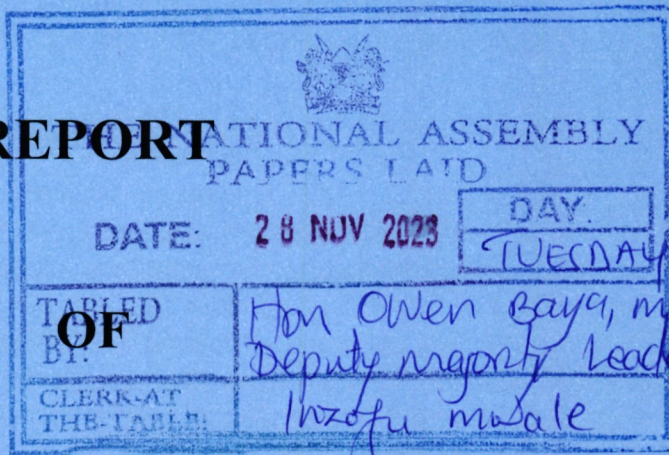 REPORT
THE NATIONAL ASSEMBLY
PAPERS LAID
DATE: 28 NOV 2023
DAY.
TUESDAY
TABLED BY:
Hon Owen Baya, m
Deputy majority Lead
OF
CLERK-AT THE-TABLE:
Inzofu mwale